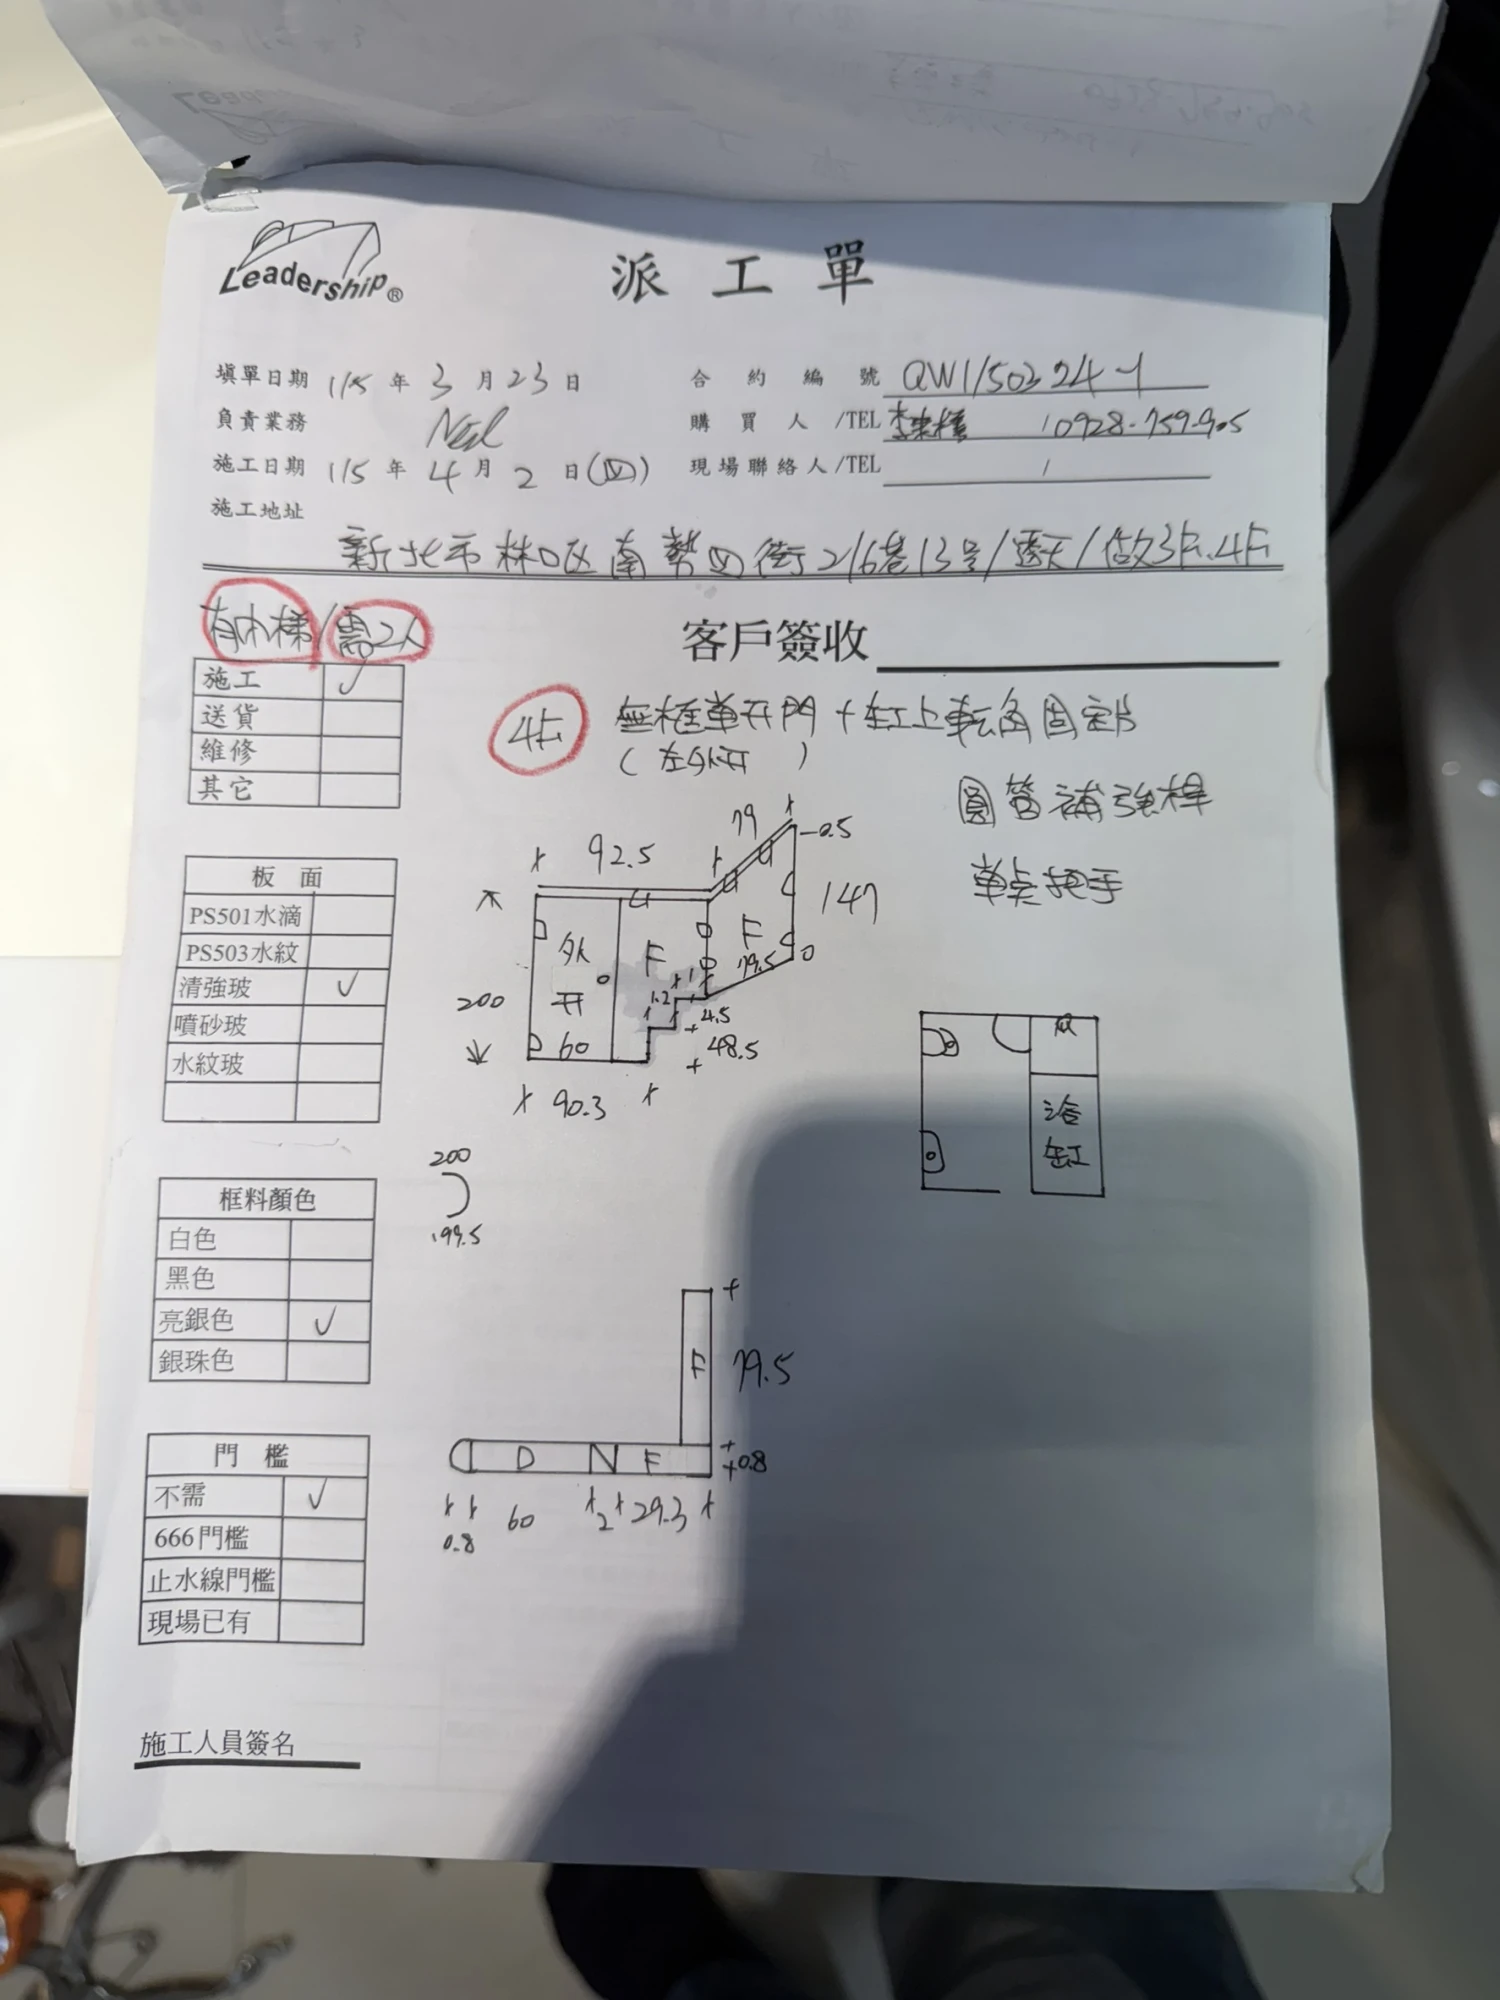 Leadership®
派工單
填單日期 115 年 3 月 23 日
合約編號 QW1150324-1
負責業務 Neil
購買人/TEL / 0928-759-905
施工日期 115 年 4 月 2 日(四)
現場聯絡人/TEL /
施工地址
新北市林口区南勢四街216巷13号/透天/做3F.4F
有內梯/需2人
客戶簽收
施工 ✓
送貨
維修
其它
4F 無框單开門+缸上転角固定片
(左外开)
圓管補強桿
單点把手
板面
PS501水滴
PS503水紋
清強玻 ✓
噴砂玻
水紋玻
92.5 79 -0.5
147
外开 F F
79.5 0
200
1.2 1
4.5
60 48.5
90.3
浴缸
200
199.5
框料顏色
白色
黑色
亮銀色 ✓
銀珠色
F 79.5
D N F 0.8
0.8 60 2 29.3
門檻
不需 ✓
666門檻
止水線門檻
現場已有
施工人員簽名